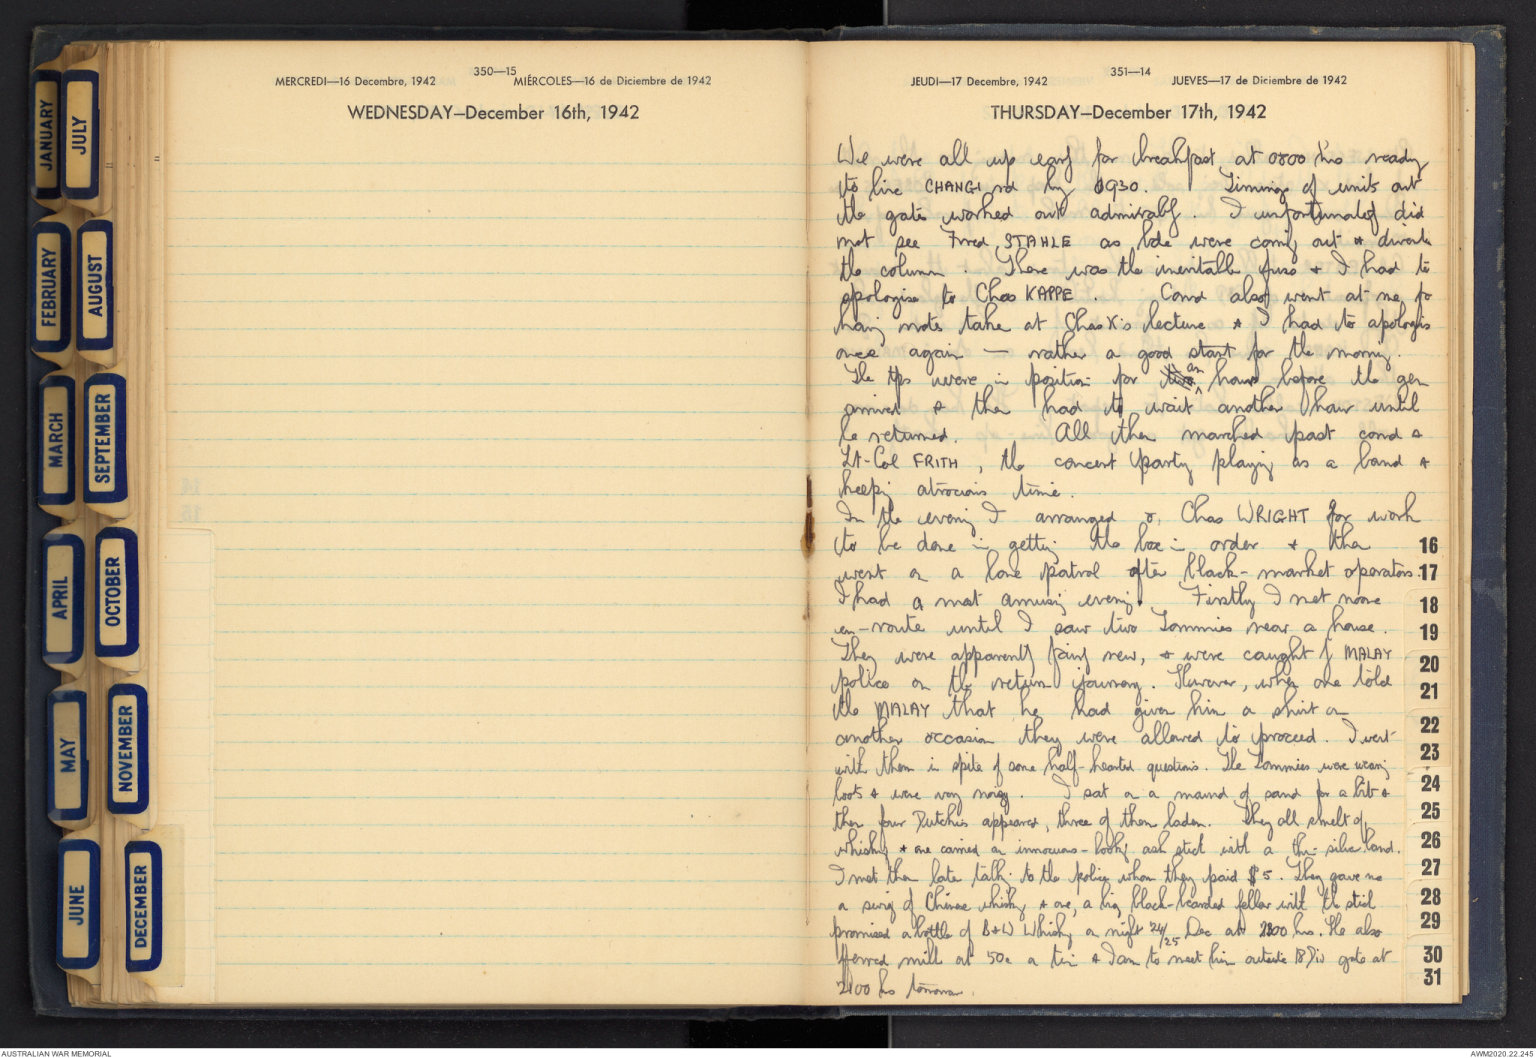 JANUARY
JULY
FEBRUARY
AUGUST
MARCH
SEPTEMBER
APRIL
OCTOBER
MAY
NOVEMBER
JUNE
DECEMBER
350—15
MERCREDI—16 Decembre, 1942 MIÉRCOLES—16 de Diciembre de 1942
WEDNESDAY—December 16th, 1942
351—14
JEUDI—17 Decembre, 1942 JUEVES—17 de Diciembre de 1942
THURSDAY—December 17th, 1942
We were all up early for breakfast at 0800 hrs ready
to line CHANGI rd by 0930. Timing of units out
the gate worked out admirably. I unfortunately did
not see Fred STAHLE as bde were coming out & divert
the column. There was the inevitable fuss & I had to
apologise to Chas KAPPE. Comd also went at me for
having notes taken at Chas K's lecture & I had to apologise
once again — rather a good start for the morning.
The tps were in position for an hour before the gen
arrived & then had to wait another hour until
he returned. All then marched past comd &
Lt-Col FRITH, the concert party playing as a band &
keeping atrocious time.
In the evening I arranged Chas WRIGHT for work
to be done in getting the box in order & then
went on a lone patrol after black-market operators.
I had a most amusing evening. Firstly I met none
en-route until I saw two Tommies near a house.
They were apparently fairly new, & were caught by MALAY
police on the return journey. However, when one told
the MALAY that he had given him a shirt on
another occasion they were allowed to proceed. I went
with them in spite of some half-hearted questions. The Tommies were wearing
boots & were very noisy. I sat on a mound of sand for a bit &
then four Dutchies appeared, three of them laden. They all smelt of
whisky & one carried an innocuous-looking ash stick with a thin silver band.
I met them later talking to the police whom they paid $5. They gave me
a swig of Chinese whisky & one, a big black-bearded fellar with the stick
promised a bottle of B&W Whisky on night 24/25 Dec at 2200 hrs. He also
offered milk at 50c a tin & I am to meet him outside 18 Div gate at
2100 hrs tomorrow.
16
17
18
19
20
21
22
23
24
25
26
27
28
29
30
31
AUSTRALIAN WAR MEMORIAL
AWM2020.22.245